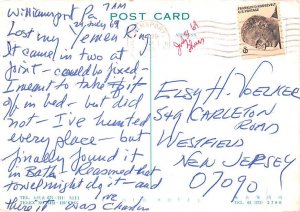 Williamsport Pa 7 AM
24, July 69
POST CARD
Lost my Yemen Ring
It came in two at
joint - could be fixed -
I meant to take it
off in bed - but did
not - I've hunted
every place - but
finally found it
in Bath - I reasoned that
towel might do it - and
there it was
I've
Elsy H. Voelker
549 Carleton
Road
Westfield
New Jersey
07090
FRANKLIN D. ROOSEVELT
U.S. POSTAGE
6¢